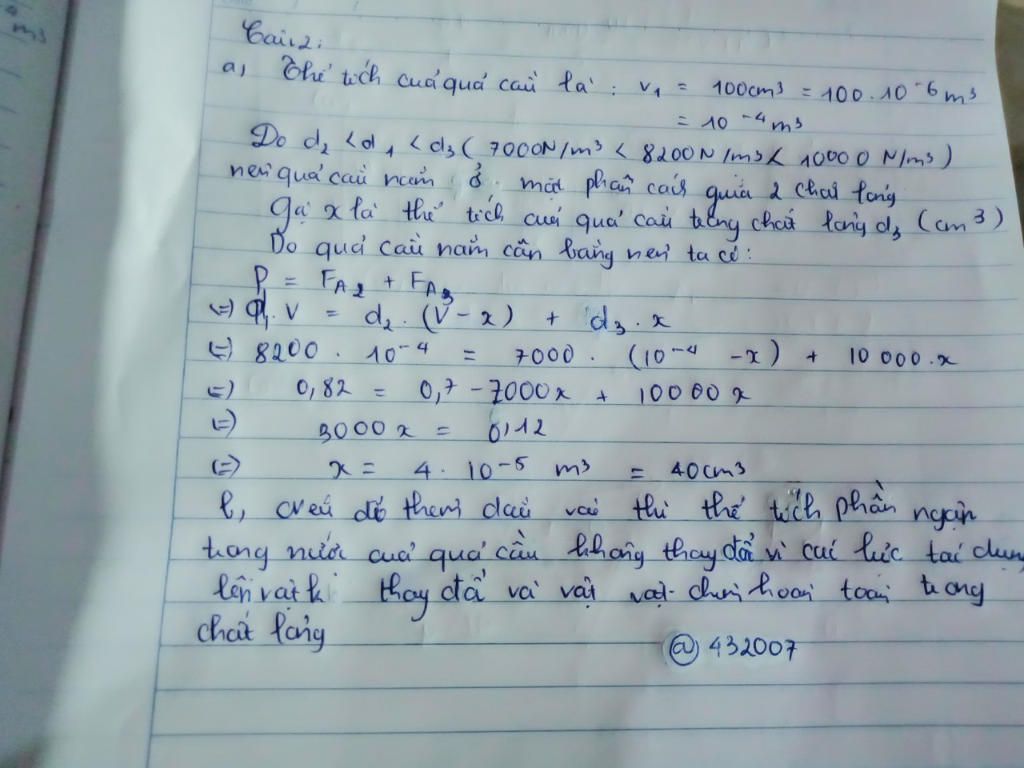 Câu 2:
a, Thể tích của quả cầu là: V₁ = 100cm³ = 100.10⁻⁶m³
= 10⁻⁴m³
Do d₂ < d₁ < d₃ ( 7000N/m³ < 8200N/m³ < 10000 N/m³)
nên quả cầu nằm ở mặt phân cách giữa 2 chất lỏng
Gọi x là thể tích của quả cầu trong chất lỏng d₃ (cm³)
Do quả cầu nằm cân bằng nên ta có:
P = FA₂ + FA₃
(=) d₁. V = d₂. (V - x) + d₃. x
(=) 8200 . 10⁻⁴ = 7000 . (10⁻⁴ - x) + 10 000. x
(=) 0,82 = 0,7 - 7000x + 10000 x
(=) 3000 x = 0,12
(=) x = 4. 10⁻⁵ m³ = 40cm³
b, Nếu đổ thêm dầu vào thì thể tích phần ngập
trong nước của quả cầu không thay đổi vì các lực tác dụng
lên vật k thay đổi và vật vật chìm hoàn toàn trong
chất lỏng
@ 432007
m³